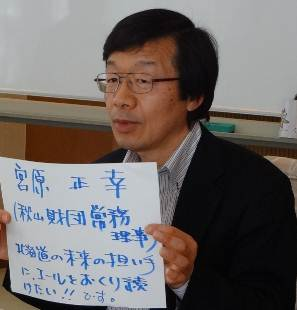 宮原 正 幸
(秋山財団常務
理事)
北海道の未来の担い手
に、エールをおくり続
けたい!!です。